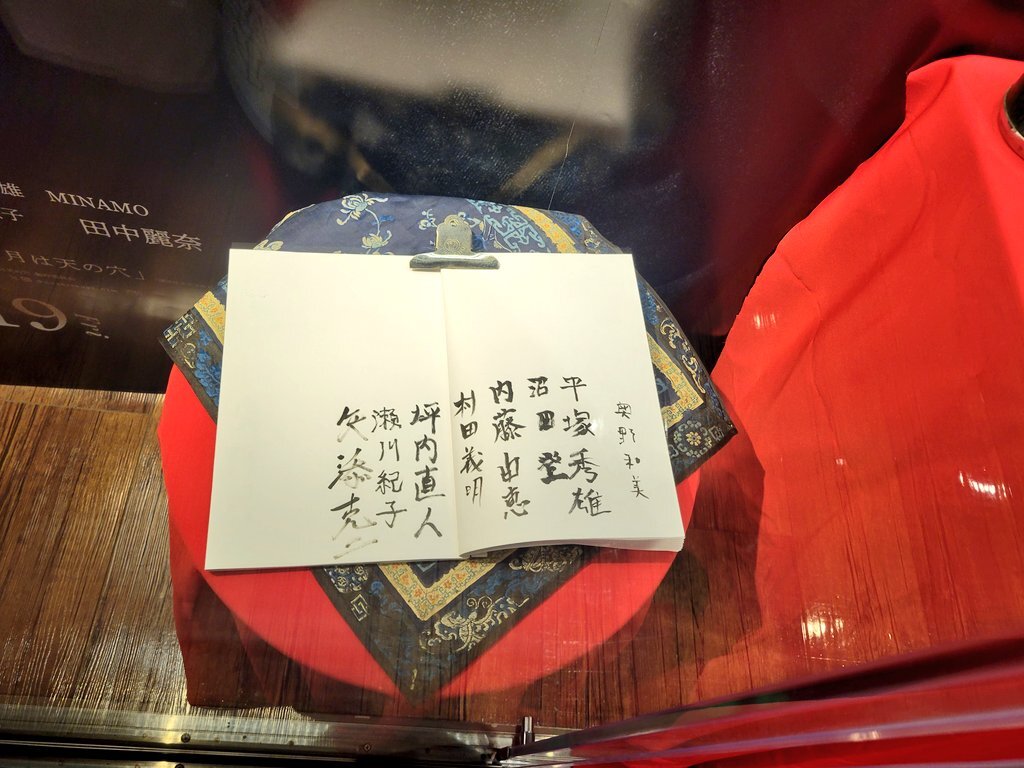 雄 MINAMO
子 田中麗奈
月は天の穴」
19
奥野和美
平塚秀雄
沼田登
内藤由恵
村田義明
坪内直人
瀬川紀子
矢添克二